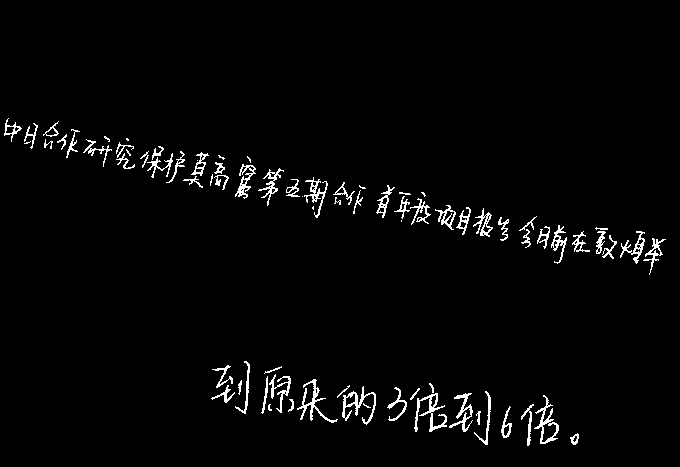 中日合作研究保护莫高窟第五期合作首年度项目报告会日前在敦煌举
到原来的3倍到6倍。